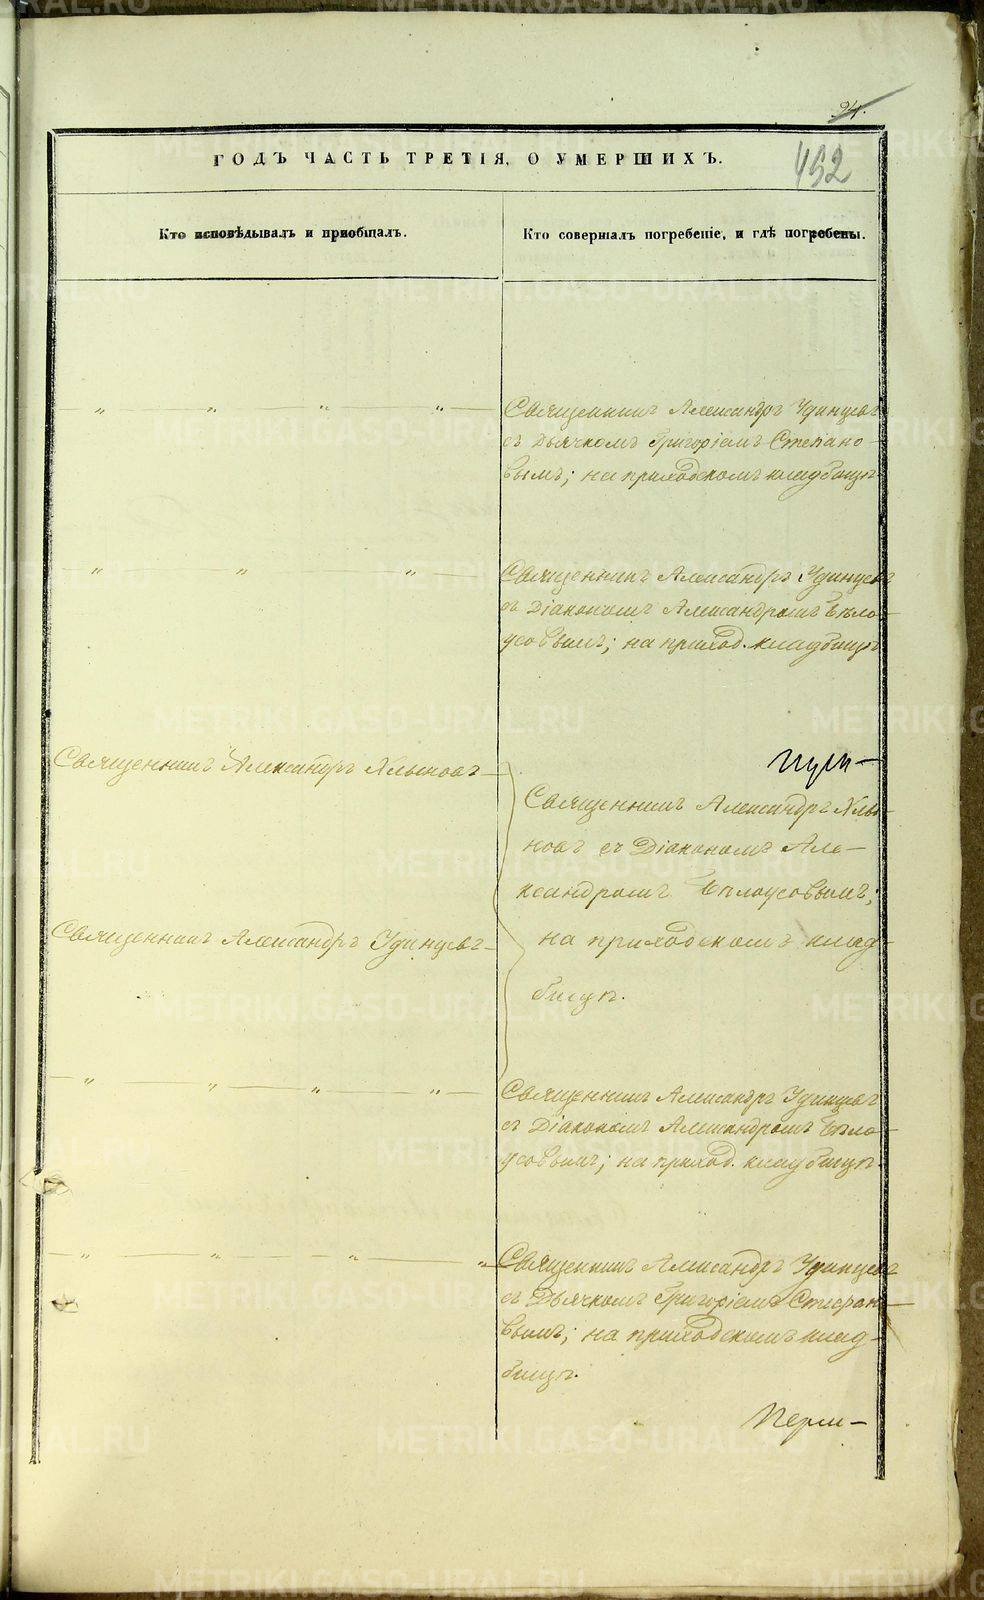 24.
ГОДЪ ЧАСТЬ ТРЕТІЯ, О УМЕРШИХЪ.
452
Кто исповѣдывалъ и приобщалъ.
Кто совершалъ погребеніе, и гдѣ погребены.
— " — " — " — " —
Священникъ Александръ Удинцевъ
съ Дьячкомъ Григоріемъ Степано-
вымъ; на приходскомъ кладбищѣ
— " — " — " —
Священникъ Александръ Удинцевъ
съ Діакономъ Александромъ Бѣло-
усовымъ; на приход. кладбищѣ
Священникъ Александръ
Священникъ Александръ
новъ съ Діакономъ Але-
ксандромъ Бѣлоусовымъ;
Священникъ Александръ Удинцевъ
на приходскомъ клад-
бищѣ.
— " — " — " — " —
Священникъ Александръ Удинцевъ
съ Діакономъ Александромъ Бѣло-
усовымъ; на приход. кладбищѣ.
— " — " — " — "
Священникъ Александръ Удинцевъ
съ Дьячкомъ Григоріемъ
вымъ; на приходскомъ клад-
бищѣ.
METRIKI.GASO-URAL.RU